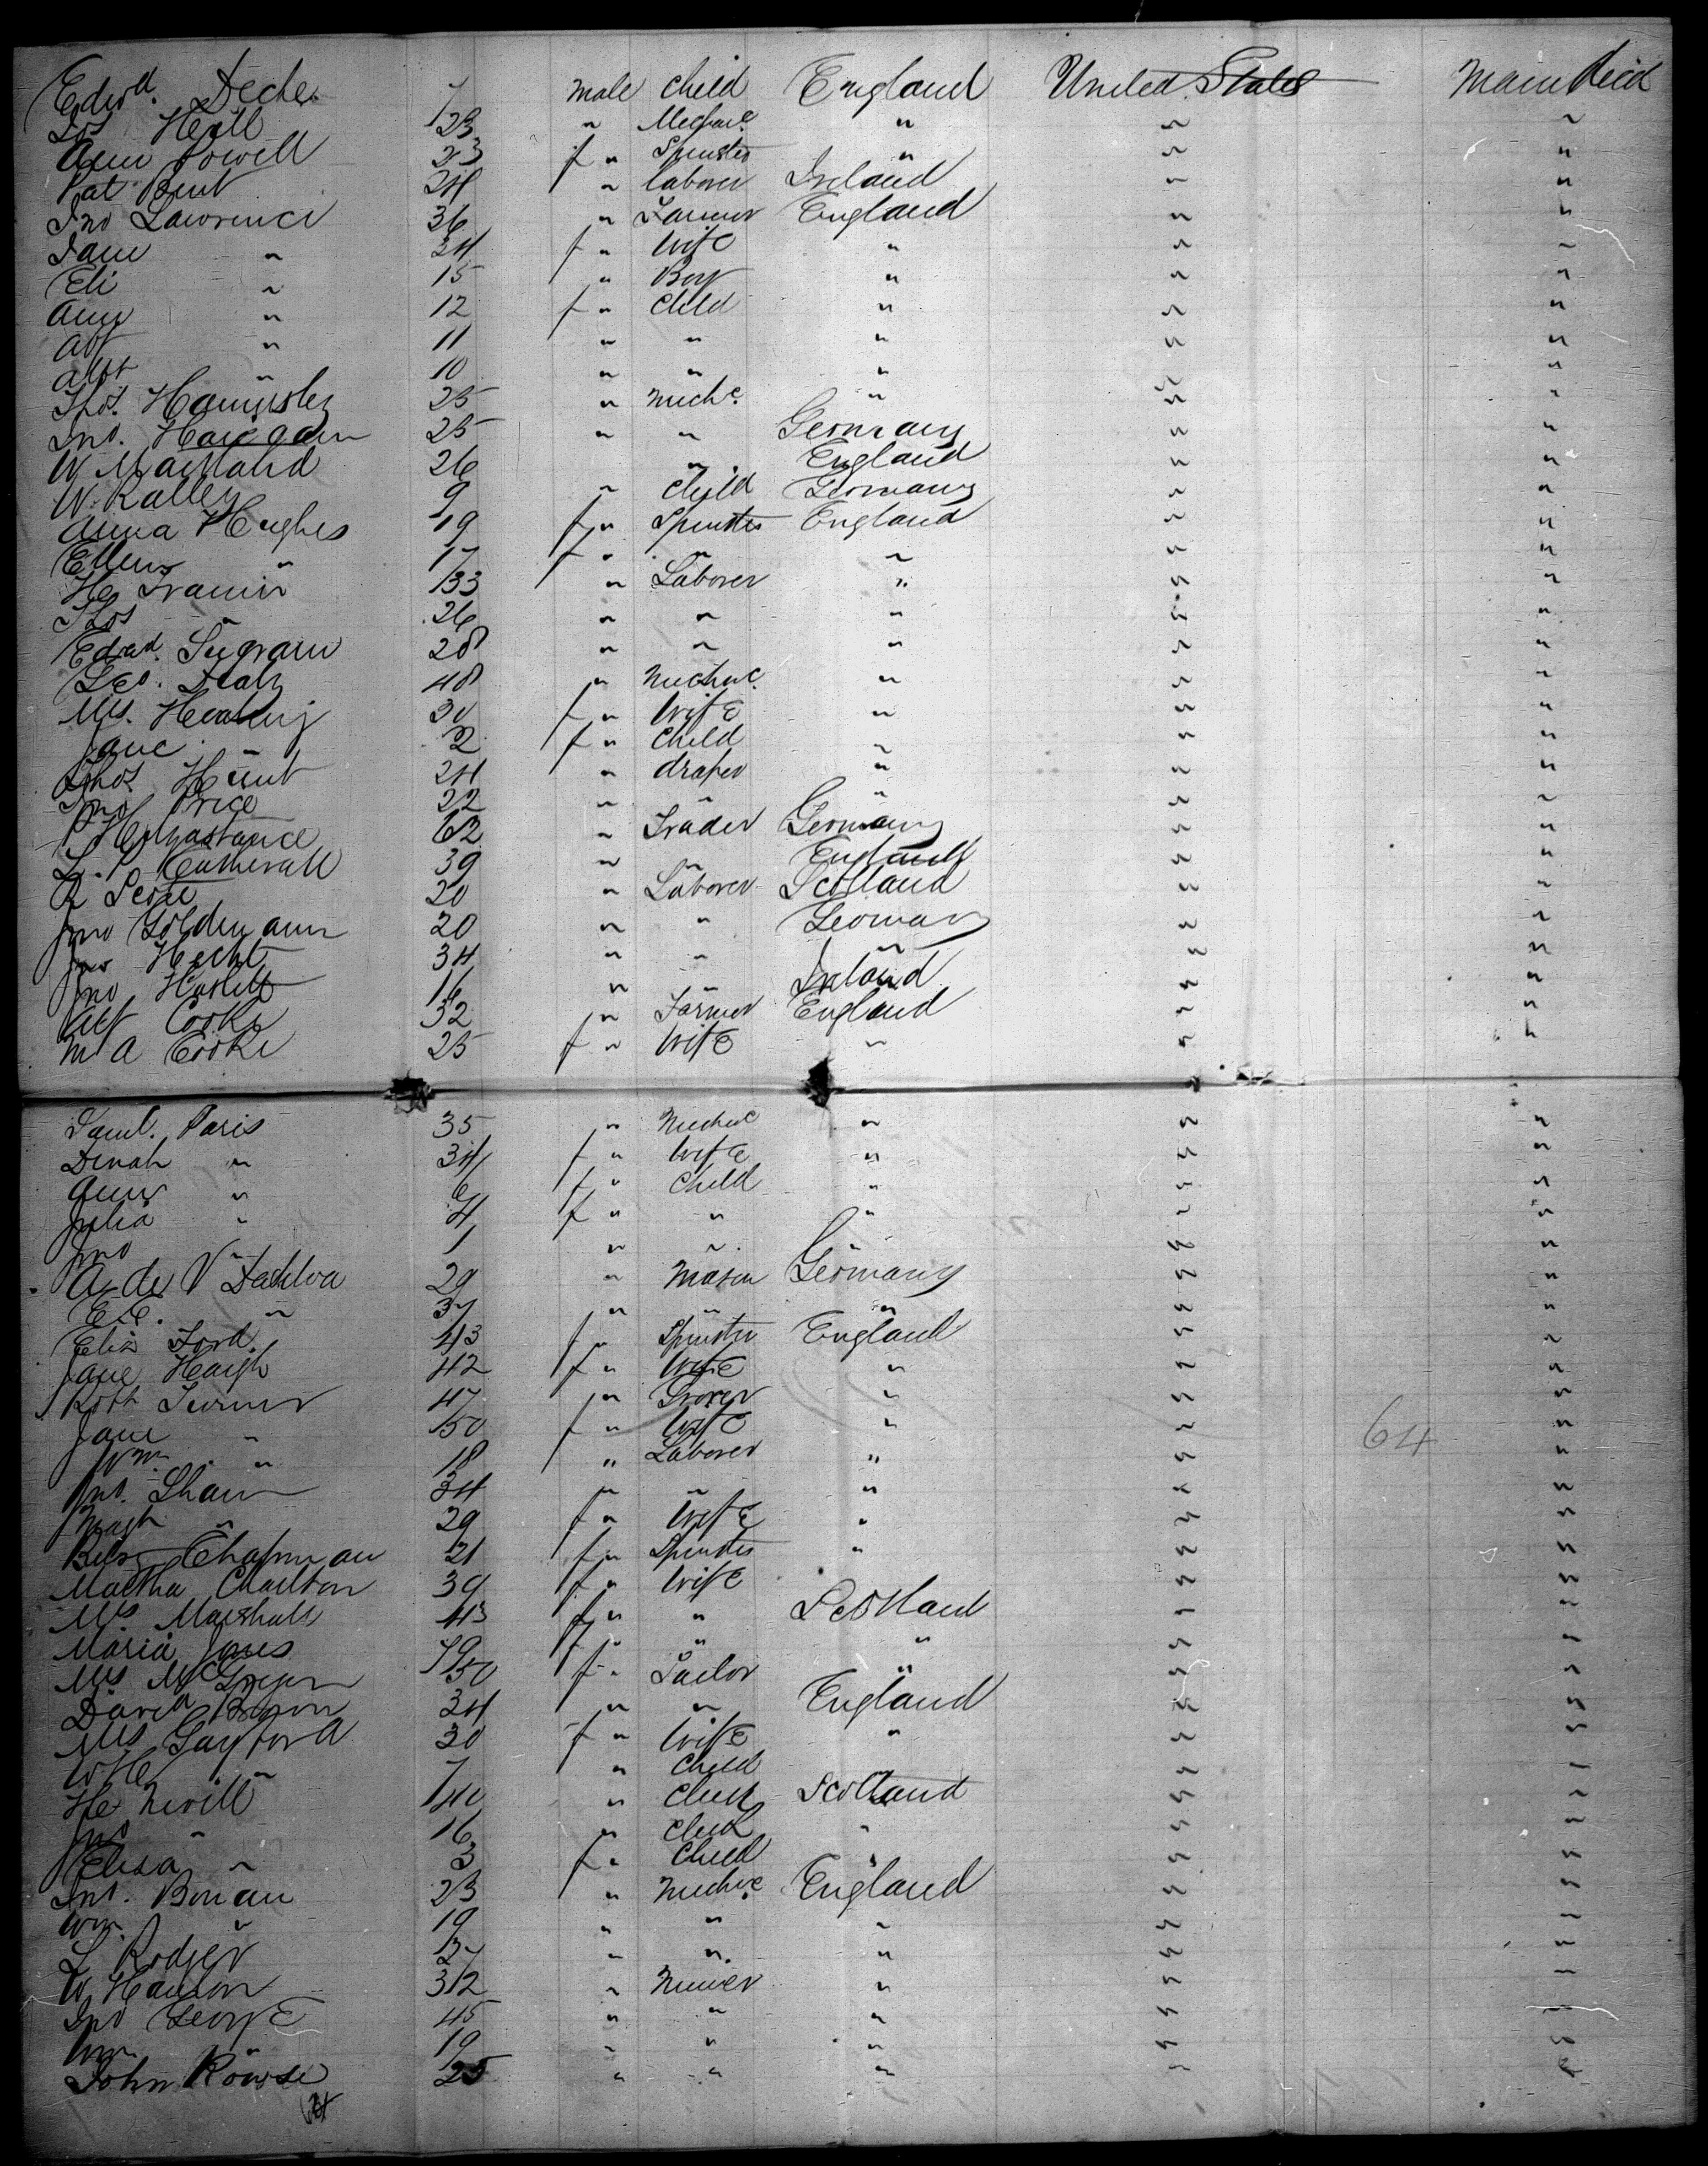 Edwd. 7 male child England United States Main Deck
Jos Hall 23 " Mechanc " " "
Ann Powell 23 f " Spinster " " "
Pat Bent 24 " laborer Ireland " "
Jno Lawrence 36 " Farmer England " "
Jane " 34 f " Wife " " "
Eli " 15 " Boy " " "
Ann " 12 f " Child " " "
" 11 " " " " "
Albt " 10 " " " " "
Thos. 25 " Mechc. " " "
Jno. 25 " " Germany " "
W Maitland 26 " England " "
W. Kalley 9 " Child Germany " "
Anna Hughes 19 f " Spinster England " "
Ellen " 17 f " " " " "
He 33 " Laborer " " "
Thos " 26 " " " " "
Edwd. Ingram 28 " " " " "
Geo. 48 " Mechanc. " " "
Mrs. 30 f " Wife " " "
Jane " 2 f " Child " " "
Thos Hunt 24 " draper " " "
Jno Price 22 " " " " "
62 " Trader Germany " "
39 " " England " "
R Scott 20 " Laborer Scotland " "
Jno Goldmann 20 " " Germany " "
Jno Hecht 34 " " " " "
Jno Haslett 16 " " Ireland " "
Alf Cooke 32 " Farmer England " "
M A Cooke 25 f " Wife " " "
Saml. Paris 35 " Mechanc " " "
Dinah " 34 f " Wife " " "
Ann " 6 f " Child " " "
Julia " 4 f " " " " "
Jno " 1 " " " " "
A de V 29 " Mason Germany " "
E. C. " 37 " " " " "
Eliz Ford 43 f " Spinster England " "
Jane Haigh 42 f " Wife " " "
Robt Turner 47 " Grocer " " "
Jane " 50 f " Wife " 64 "
Wm. " 18 " Laborer " " "
Jno. Sham 34 " " " " "
" 29 f " Wife " " "
Betsy Chapman 21 f " Spinster " " "
Martha Charlton 39 f " Wife " " "
Mrs. Marshall 43 f " " Scotland " "
Maria Jones f " " " " "
Mrs McGregor 50 f " Tailor " " "
David Byron 34 " " England " "
Mrs Gayford 30 f " Wife " " "
WH " 7 " Child " " "
He Nevill 40 " Clerk Scotland " "
Jno " 16 " Clerk " " "
Elisa " 3 f " Child " " "
Jno. Bonan 23 " Mechanc England " "
Wm " 19 " " " " "
L Rodger 27 " " " " "
W Hanlon " Miner " " "
Jno George 45 " " " " "
Wm " 19 " " " " "
John Rowse 25 " " " " "
64